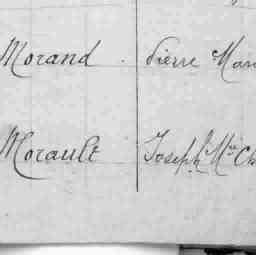 Morand Pierre Mar
Morault Joseph Mie Ch